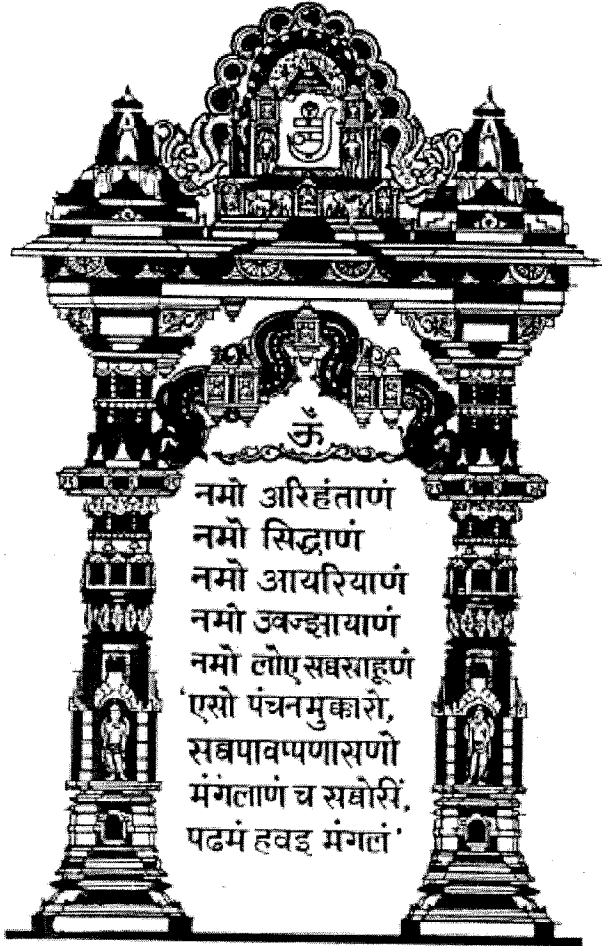 ॐ
नमो अरिहंताणं
नमो सिद्धाणं
नमो आयरियाणं
नमो उवज्झायाणं
नमो लोए सव्वसाहूणं
'एसो पंचनमुक्कारो,
सव्वपावप्पणासणो
मंगलाणं च सव्वेसिं,
पढमं हवइ मंगलं'